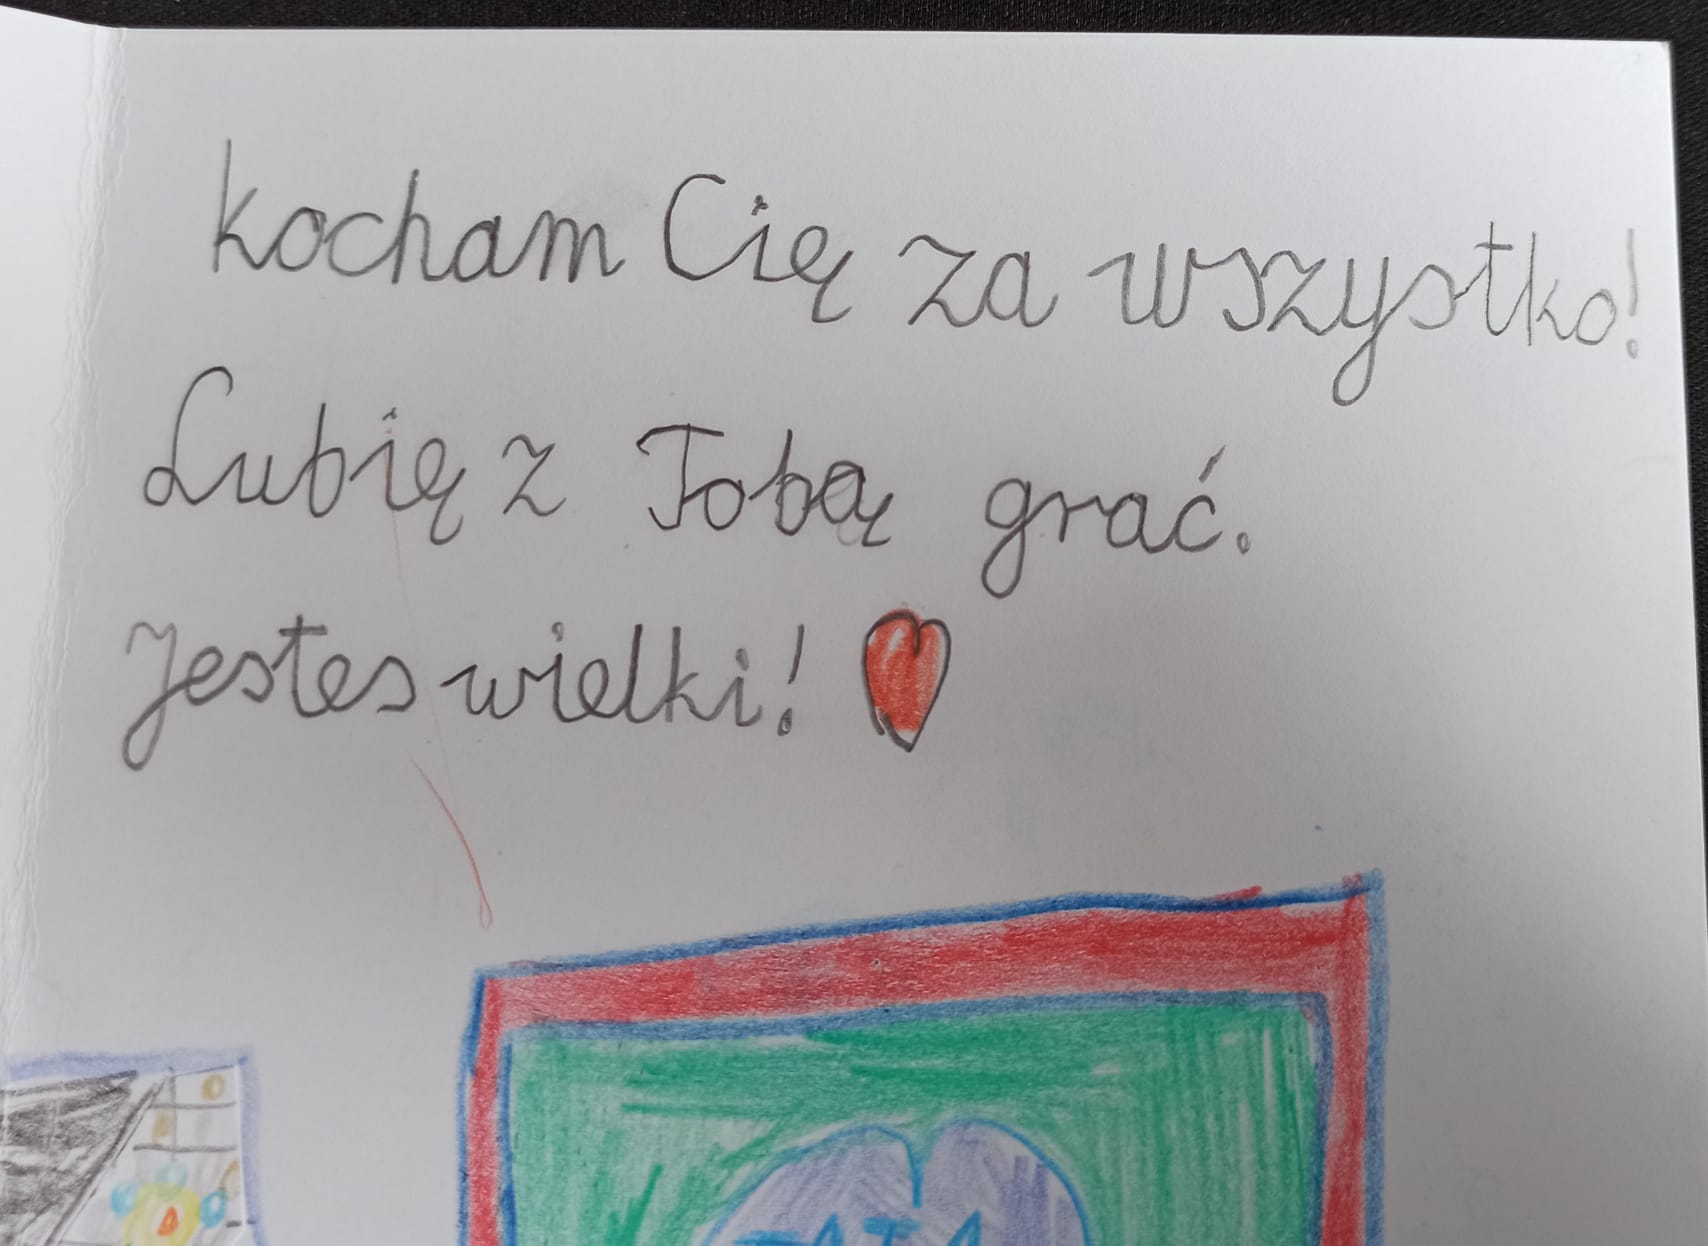 kocham Cię za wszystko!
Lubię z Tobą grać.
Jestes wielki!
TATA